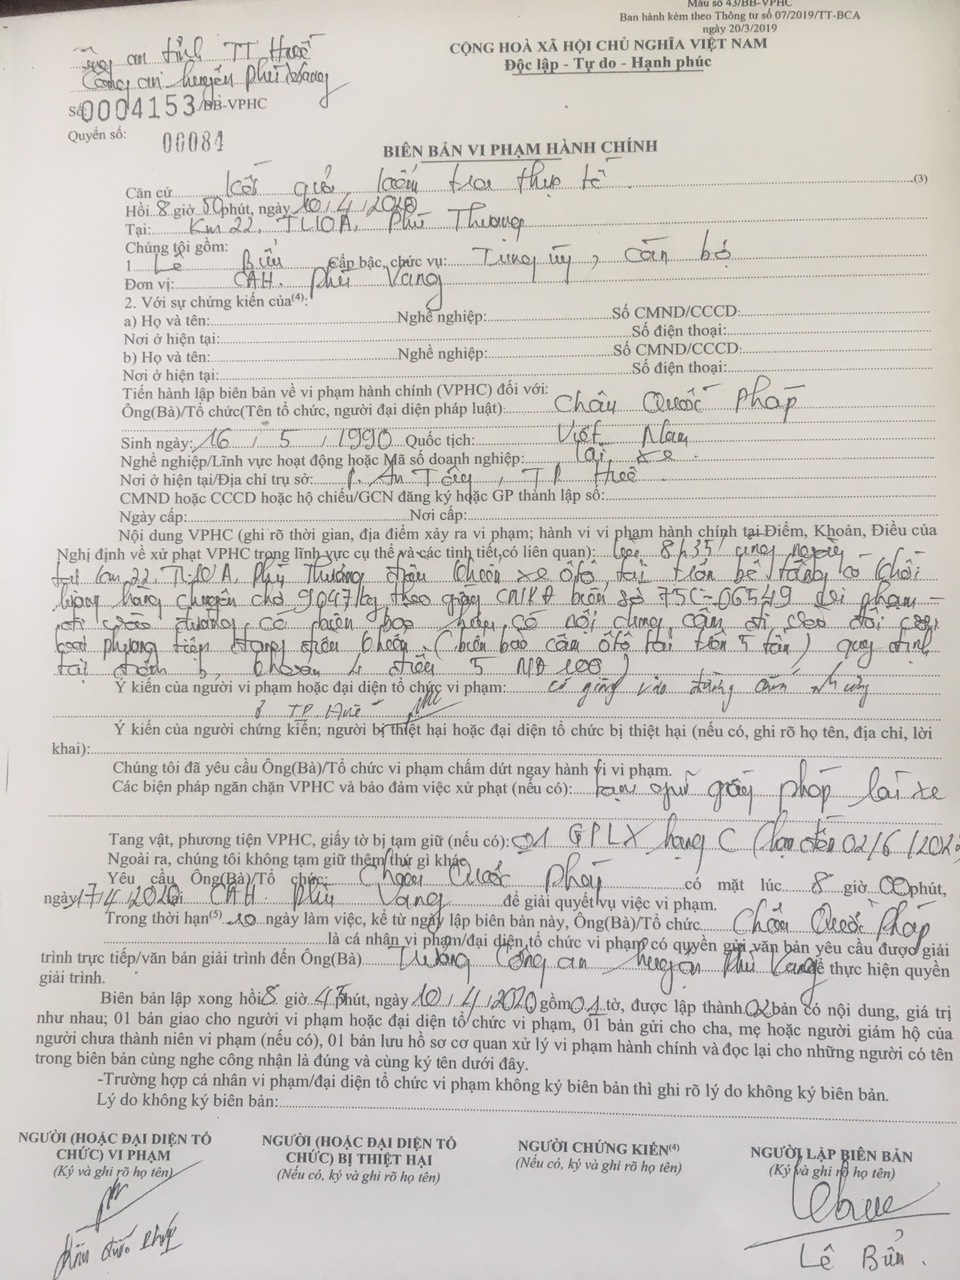 Mẫu số 43/BB-VPHC
Ban hành kèm theo Thông tư số 07/2019/TT-BCA
ngày 20/3/2019
Công an tỉnh TT Huế
CỘNG HOÀ XÃ HỘI CHỦ NGHĨA VIỆT NAM
Công an huyện Phú Vang
Độc lập - Tự do - Hạnh phúc
Số 0004153/BB-VPHC
Quyển số: 00084
BIÊN BẢN VI PHẠM HÀNH CHÍNH
Căn cứ kết quả kiểm tra thực tế (3)
Hồi 8 giờ 50 phút, ngày 10/4/2020
Tại: Km 22, TL10A, Phú Thượng
Chúng tôi gồm:
1 Lê Bửu Cấp bậc, chức vụ: Trung úy, cán bộ
Đơn vị: CAH. Phú Vang
2. Với sự chứng kiến của(4):
a) Họ và tên: Nghề nghiệp: Số CMND/CCCD:
Nơi ở hiện tại: Số điện thoại:
b) Họ và tên: Nghề nghiệp: Số CMND/CCCD:
Nơi ở hiện tại: Số điện thoại:
Tiến hành lập biên bản về vi phạm hành chính (VPHC) đối với:
Ông(Bà)/Tổ chức(Tên tổ chức, người đại diện pháp luật) Châu Quốc Pháp
Sinh ngày: 16/5/1990 Quốc tịch: Việt Nam
Nghề nghiệp/Lĩnh vực hoạt động hoặc Mã số doanh nghiệp: Lái xe
Nơi ở hiện tại/Địa chỉ trụ sở: P. An Tây, TP Huế
CMND hoặc CCCD hoặc hộ chiếu/GCN đăng ký hoặc GP thành lập số:
Ngày cấp: Nơi cấp:
Nội dung VPHC (ghi rõ thời gian, địa điểm xảy ra vi phạm; hành vi vi phạm hành chính tại Điểm, Khoản, Điều của
Nghị định về xử phạt VPHC trong lĩnh vực cụ thể và các tình tiết có liên quan): Lúc 8h35' cùng ngày
tại Km 22, TL10A, Phú Thượng điều khiển xe ôtô tải có khối
lượng hàng chuyên chở 9047kg theo giấy CNKĐ biển số 75C-06549 vi phạm
đi vào đường có biển báo hiệu có nội dung cấm đi vào đối với
loại phương tiện đang điều khiển (biển báo cấm ôtô tải trên 5 tấn) quy định
tại điểm b, khoản 4 điều 5 NĐ 100
Ý kiến của người vi phạm hoặc đại diện tổ chức vi phạm: vào đường cấm
ở TP. Huế
Ý kiến của người chứng kiến; người bị thiệt hại hoặc đại diện tổ chức bị thiệt hại (nếu có, ghi rõ họ tên, địa chỉ, lời
khai):
Chúng tôi đã yêu cầu Ông(Bà)/Tổ chức vi phạm chấm dứt ngay hành vi vi phạm.
Các biện pháp ngăn chặn VPHC và bảo đảm việc xử phạt (nếu có): tạm giữ giấy phép lái xe
Tang vật, phương tiện VPHC, giấy tờ bị tạm giữ (nếu có): 01 GPLX hạng C
Ngoài ra, chúng tôi không tạm giữ thêm thứ gì khác
Yêu cầu Ông(Bà)/Tổ chức: Châu Quốc Pháp có mặt lúc 8 giờ 00 phút,
ngày 17/4/2020 tại CAH. Phú Vang để giải quyết vụ việc vi phạm.
Trong thời hạn(5) 10 ngày làm việc, kể từ ngày lập biên bản này, Ông(Bà)/Tổ chức Châu Quốc Pháp
là cá nhân vi phạm/đại diện tổ chức vi phạm có quyền gửi văn bản yêu cầu được giải
trình trực tiếp/văn bản giải trình đến Ông(Bà) Trưởng Công an huyện Phú Vang để thực hiện quyền
giải trình.
Biên bản lập xong hồi 8 giờ 45 phút, ngày 10/4/2020 gồm 01 tờ, được lập thành 02 bản có nội dung, giá trị
như nhau; 01 bản giao cho người vi phạm hoặc đại diện tổ chức vi phạm, 01 bản gửi cho cha, mẹ hoặc người giám hộ của
người chưa thành niên vi phạm (nếu có), 01 bản lưu hồ sơ cơ quan xử lý vi phạm hành chính và đọc lại cho những người có tên
trong biên bản cùng nghe công nhận là đúng và cùng ký tên dưới đây.
-Trường hợp cá nhân vi phạm/đại diện tổ chức vi phạm không ký biên bản thì ghi rõ lý do không ký biên bản.
Lý do không ký biên bản:
NGƯỜI (HOẶC ĐẠI DIỆN TỔ CHỨC) VI PHẠM
(Ký và ghi rõ họ tên)
NGƯỜI (HOẶC ĐẠI DIỆN TỔ CHỨC) BỊ THIỆT HẠI
(Nếu có, ký và ghi rõ họ tên)
NGƯỜI CHỨNG KIẾN(4)
(Nếu có, ký và ghi rõ họ tên)
NGƯỜI LẬP BIÊN BẢN
(Ký và ghi rõ họ tên)
Châu Quốc Pháp
Lê Bửu